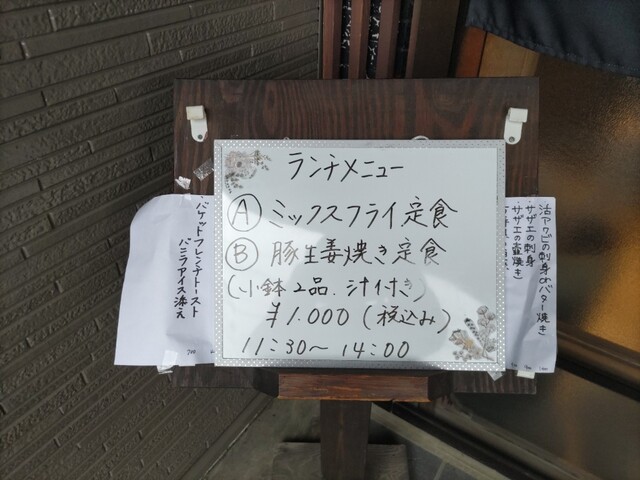 ランチメニュー
Ⓐ ミックスフライ定食
Ⓑ 豚生姜焼き定食
(小鉢2品、汁付き)
¥1.000(税込み)
11:30〜14:00
活アワビの刺身orバター焼き
・サザエの刺身
・サザエの壺焼き
バゲットフレンチトースト
バニラアイス添え